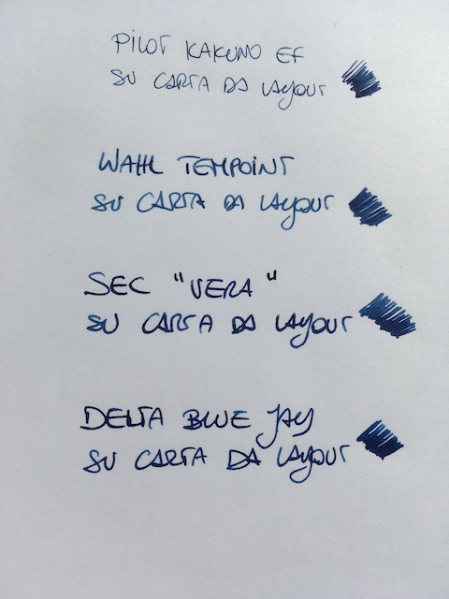 PILOT KAKUNO EF
SU CARTA DA LAYOUT
WAHL TEMPOINT
SU CARTA DA LAYOUT
SEC "VERA"
SU CARTA DA LAYOUT
DELTA BLUE JAY
SU CARTA DA LAYOUT